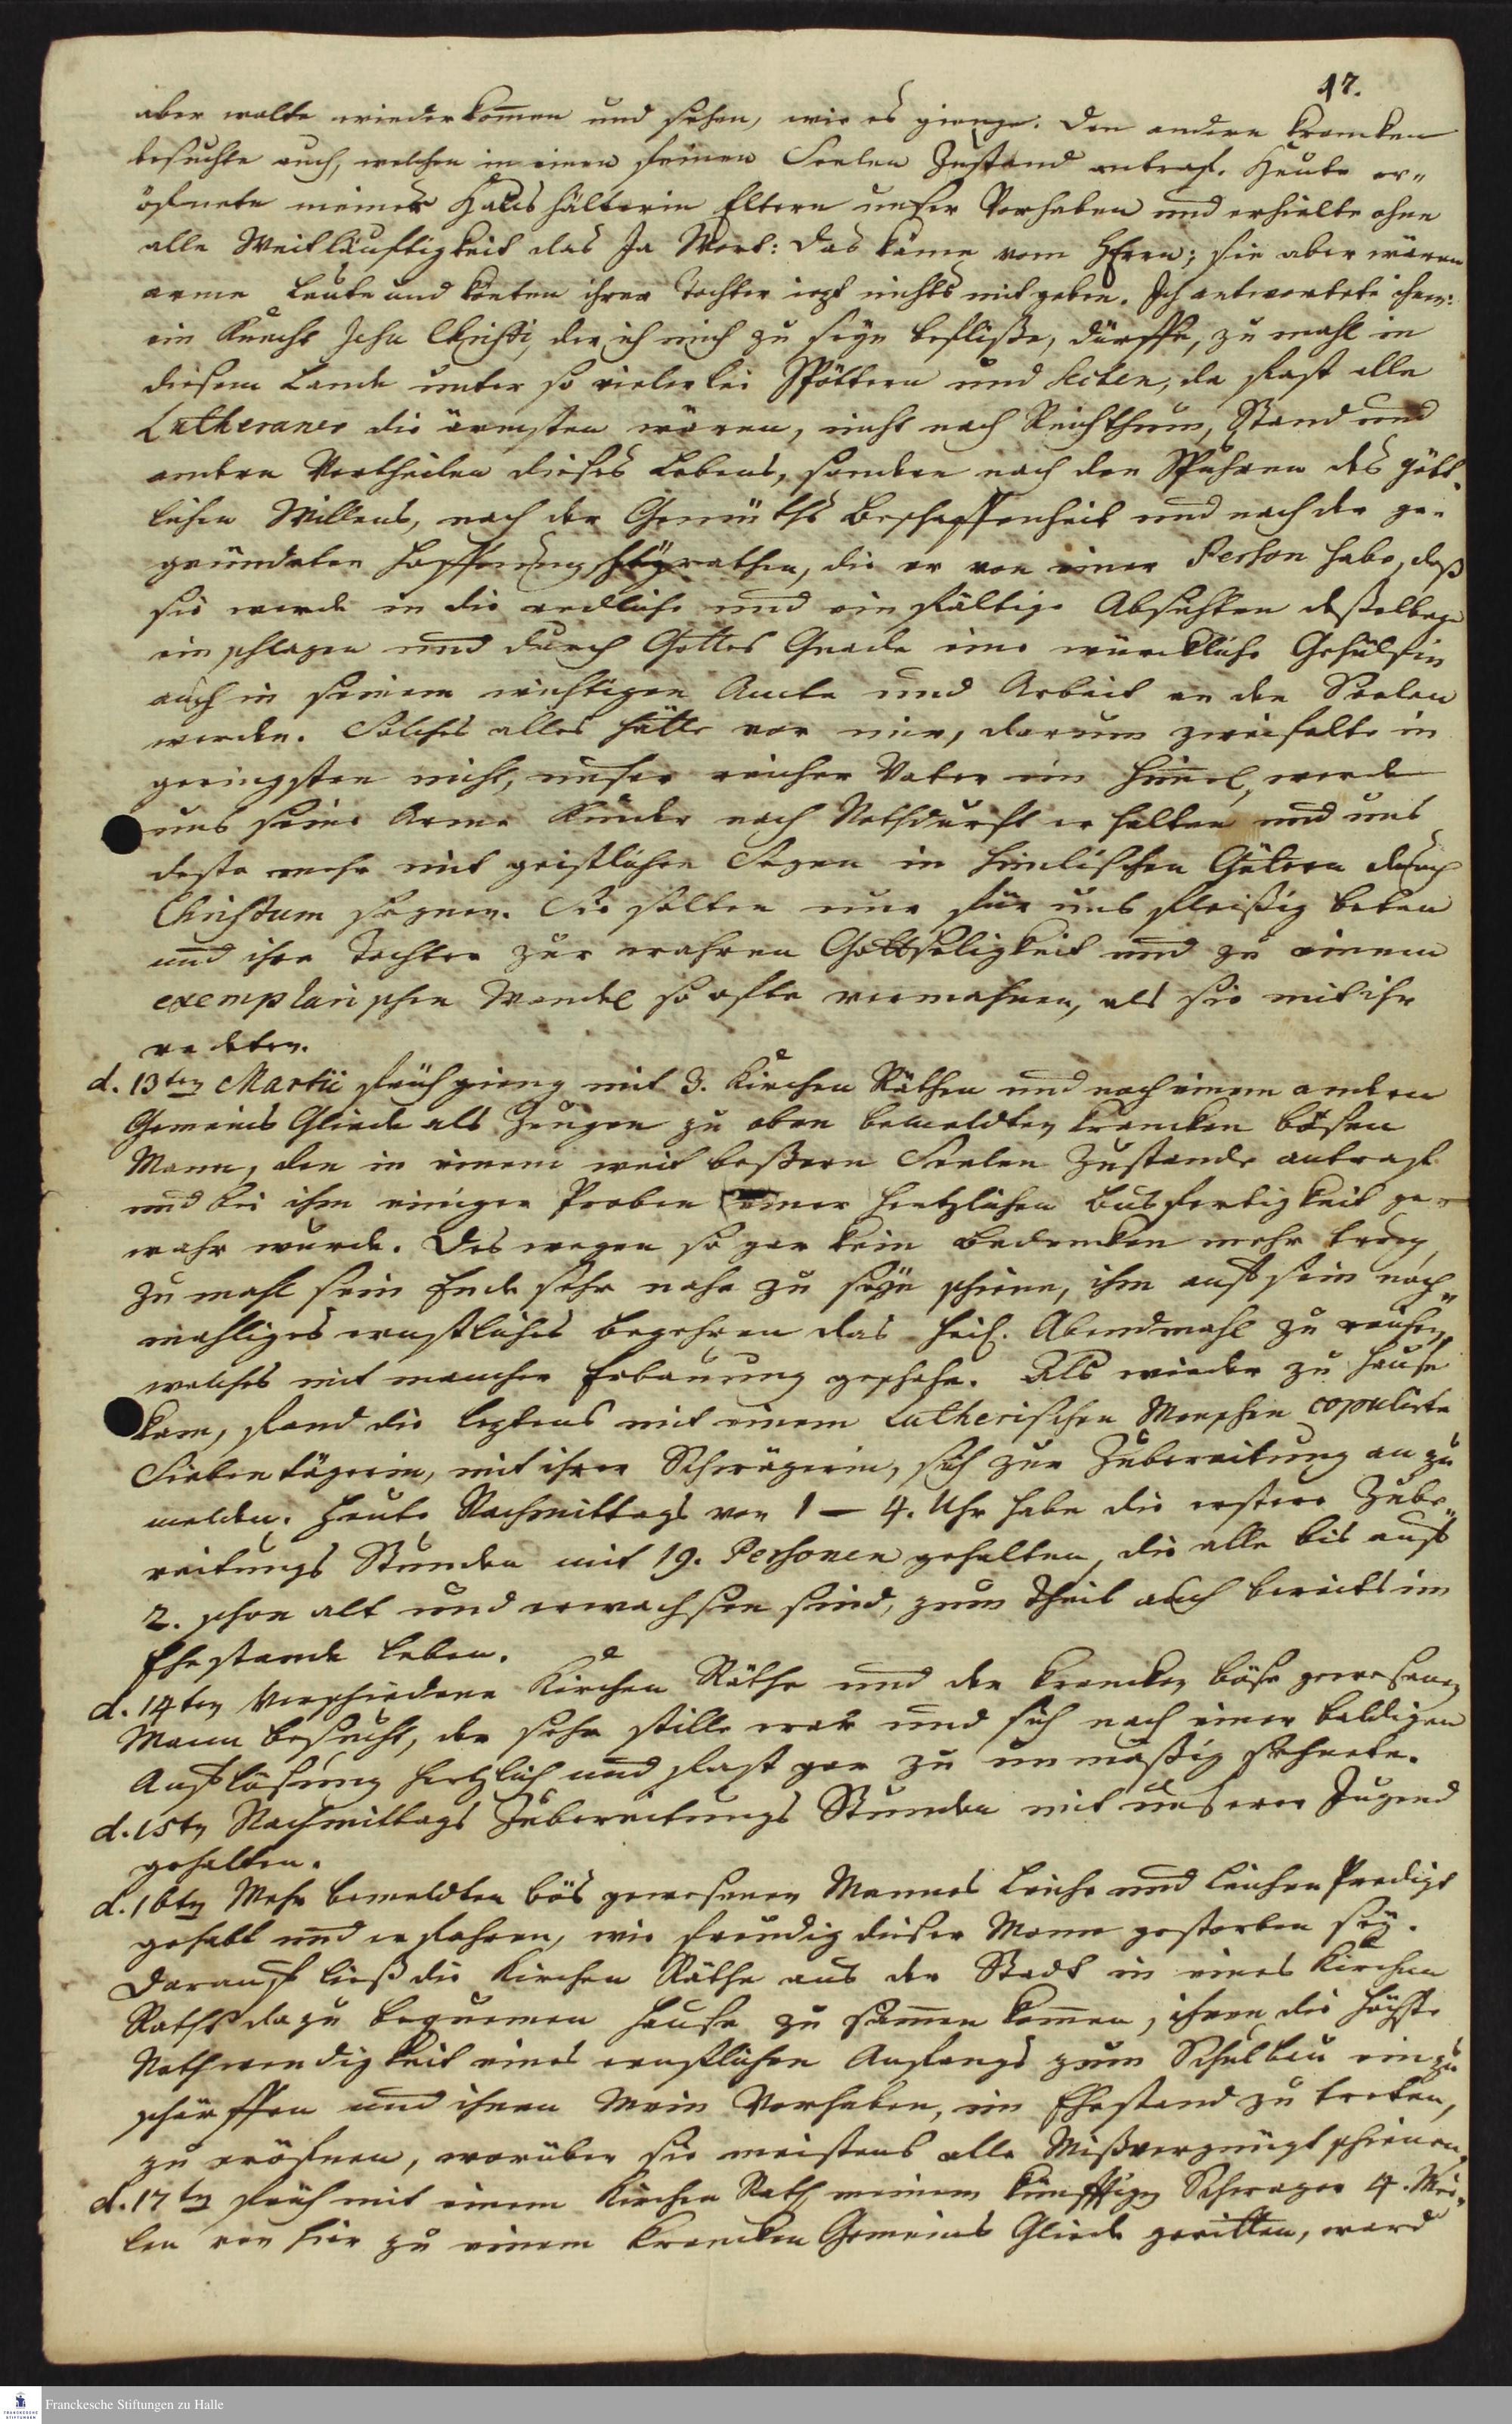 17.
aber wolte wiederkom̄en und sehen, wie es gienge. Den andern krancken
besuchte auch, welchen in einen feinen Seelen Zustand antraf. Heute er-
öfnete meiner Haushälterin Eltern unser Vorhaben und erhielte ohne
alle Weitläuftigkeit das Ja Wort: das käme vom HErrn; sie aber wären
arme Leute und könten ihrer Tochter iezt nichts mitgeben. Ich antwortete ihnen:
ein Knecht Jesu Christi, der ich mich zu seyn befliße, dürffe, zu mahl in
diesem Lande unter so vielerlei Spöttern und Secten, da fast alle
Lutheraner die ärmsten wären, nicht nach Reichthum, Stand und
andern Vortheilen dieses Lebens, sondern nach den Spuhren des gött-
lichen Willens, nach der Gemüths Beschaffenheit und nach der ge-
gründeten Hoffnung heyrathen, die er von einer Person habe, daß
sie werde in die redliche und einfältige Absichten deßelben
einschlagen und durch Gottes Gnade eine würckliche Gehülfin
auch in seinem wichtigen Amte und Arbeit an den Seelen
werden. Solches alles hätte vor mir, darum zweifelte im
geringsten nicht, unser reicher Vater im Him̄el, werde
uns seine Arme Kinder nach Nothdurft erhalten und uns
desto mehr mit geistlichen Segen in him̄lischen Gütern durch
Christum segnen. Sie solten nur für uns fleißig beten
und ihre Tochter zur wahren Gottseligkeit und zu einem
exemplarischen Wandel so ofte vermahnen, als sie mit ihr
redeten.
d. 13ten Martii früh gieng mit 3. Kirchen Räthen und noch einem andern
Gemeins Gliede als Zeugen zu oben bemeldten krancken bösen
Mann, den in einem weit beßern Seelen Zustande antraf
und bei ihm einiger Proben einer hertzlichen Busfertigkeit ge-
wahr wurde. Deswegen so gar kein Bedencken mehr trug,
zu mahl sein Ende sehr nahe zu seyn schiene, ihm auf sein noch-
mahliges ernstliches Begehren das heil. Abendmahl zu reichen,
welches mit mancher Erbauung geschahe. Als wieder zu Hause
kam, fand die leztens mit einem Lutherischen Menschen copulirte
Siebentägerin, mit ihrer Schwägerin, sich zur Zubereitung an zu
melden. Heute Nachmittags von 1 — 4. Uhr habe die erstere Zube-
reitungs Stunden mit 19. Personen gehalten, die alle bis auf
2. schon alt und erwachsen sind, zum Theil auch bereits im
Ehestande leben.
d. 14ten Verschiedene Kirchen Räthe und den krancken böse gewesenen
Mann besucht, der sehr stille war und sich nach einer baldigen
Auflösung hertzlich und fast gar zu unmäßig sehnete.
d. 15ten Nachmittags Zubereitungs Stunden mit unserer Jugend
gehalten.
d. 16ten Mehr bemeldten bös gewesenen Mannes Leiche und Leichen Predigt
gehabt und erfahren, wie freudig dieser Mann gestorben sey.
Darauf ließ die Kirchen Räthe aus der Stadt in eines Kirchen
Raths dazu bequemen Hause zu sam̄en kom̄en, ihnen die höchste
Nothwendigkeit eines ernstlichen Anfangs zum Schulbau ein zu
schärffen und ihnen Mein Vorhaben, im Ehestand zu treten,
zu eröfnen, worüber sie meistens alle Misvergnügt schienen.
d. 17ten früh mit einem Kirchen Rath, meinem künfftigen Schwager 4. Mei-
len von hier zu einem krancken Gemeins Gliede geritten, ward
Franckesche Stiftungen zu Halle